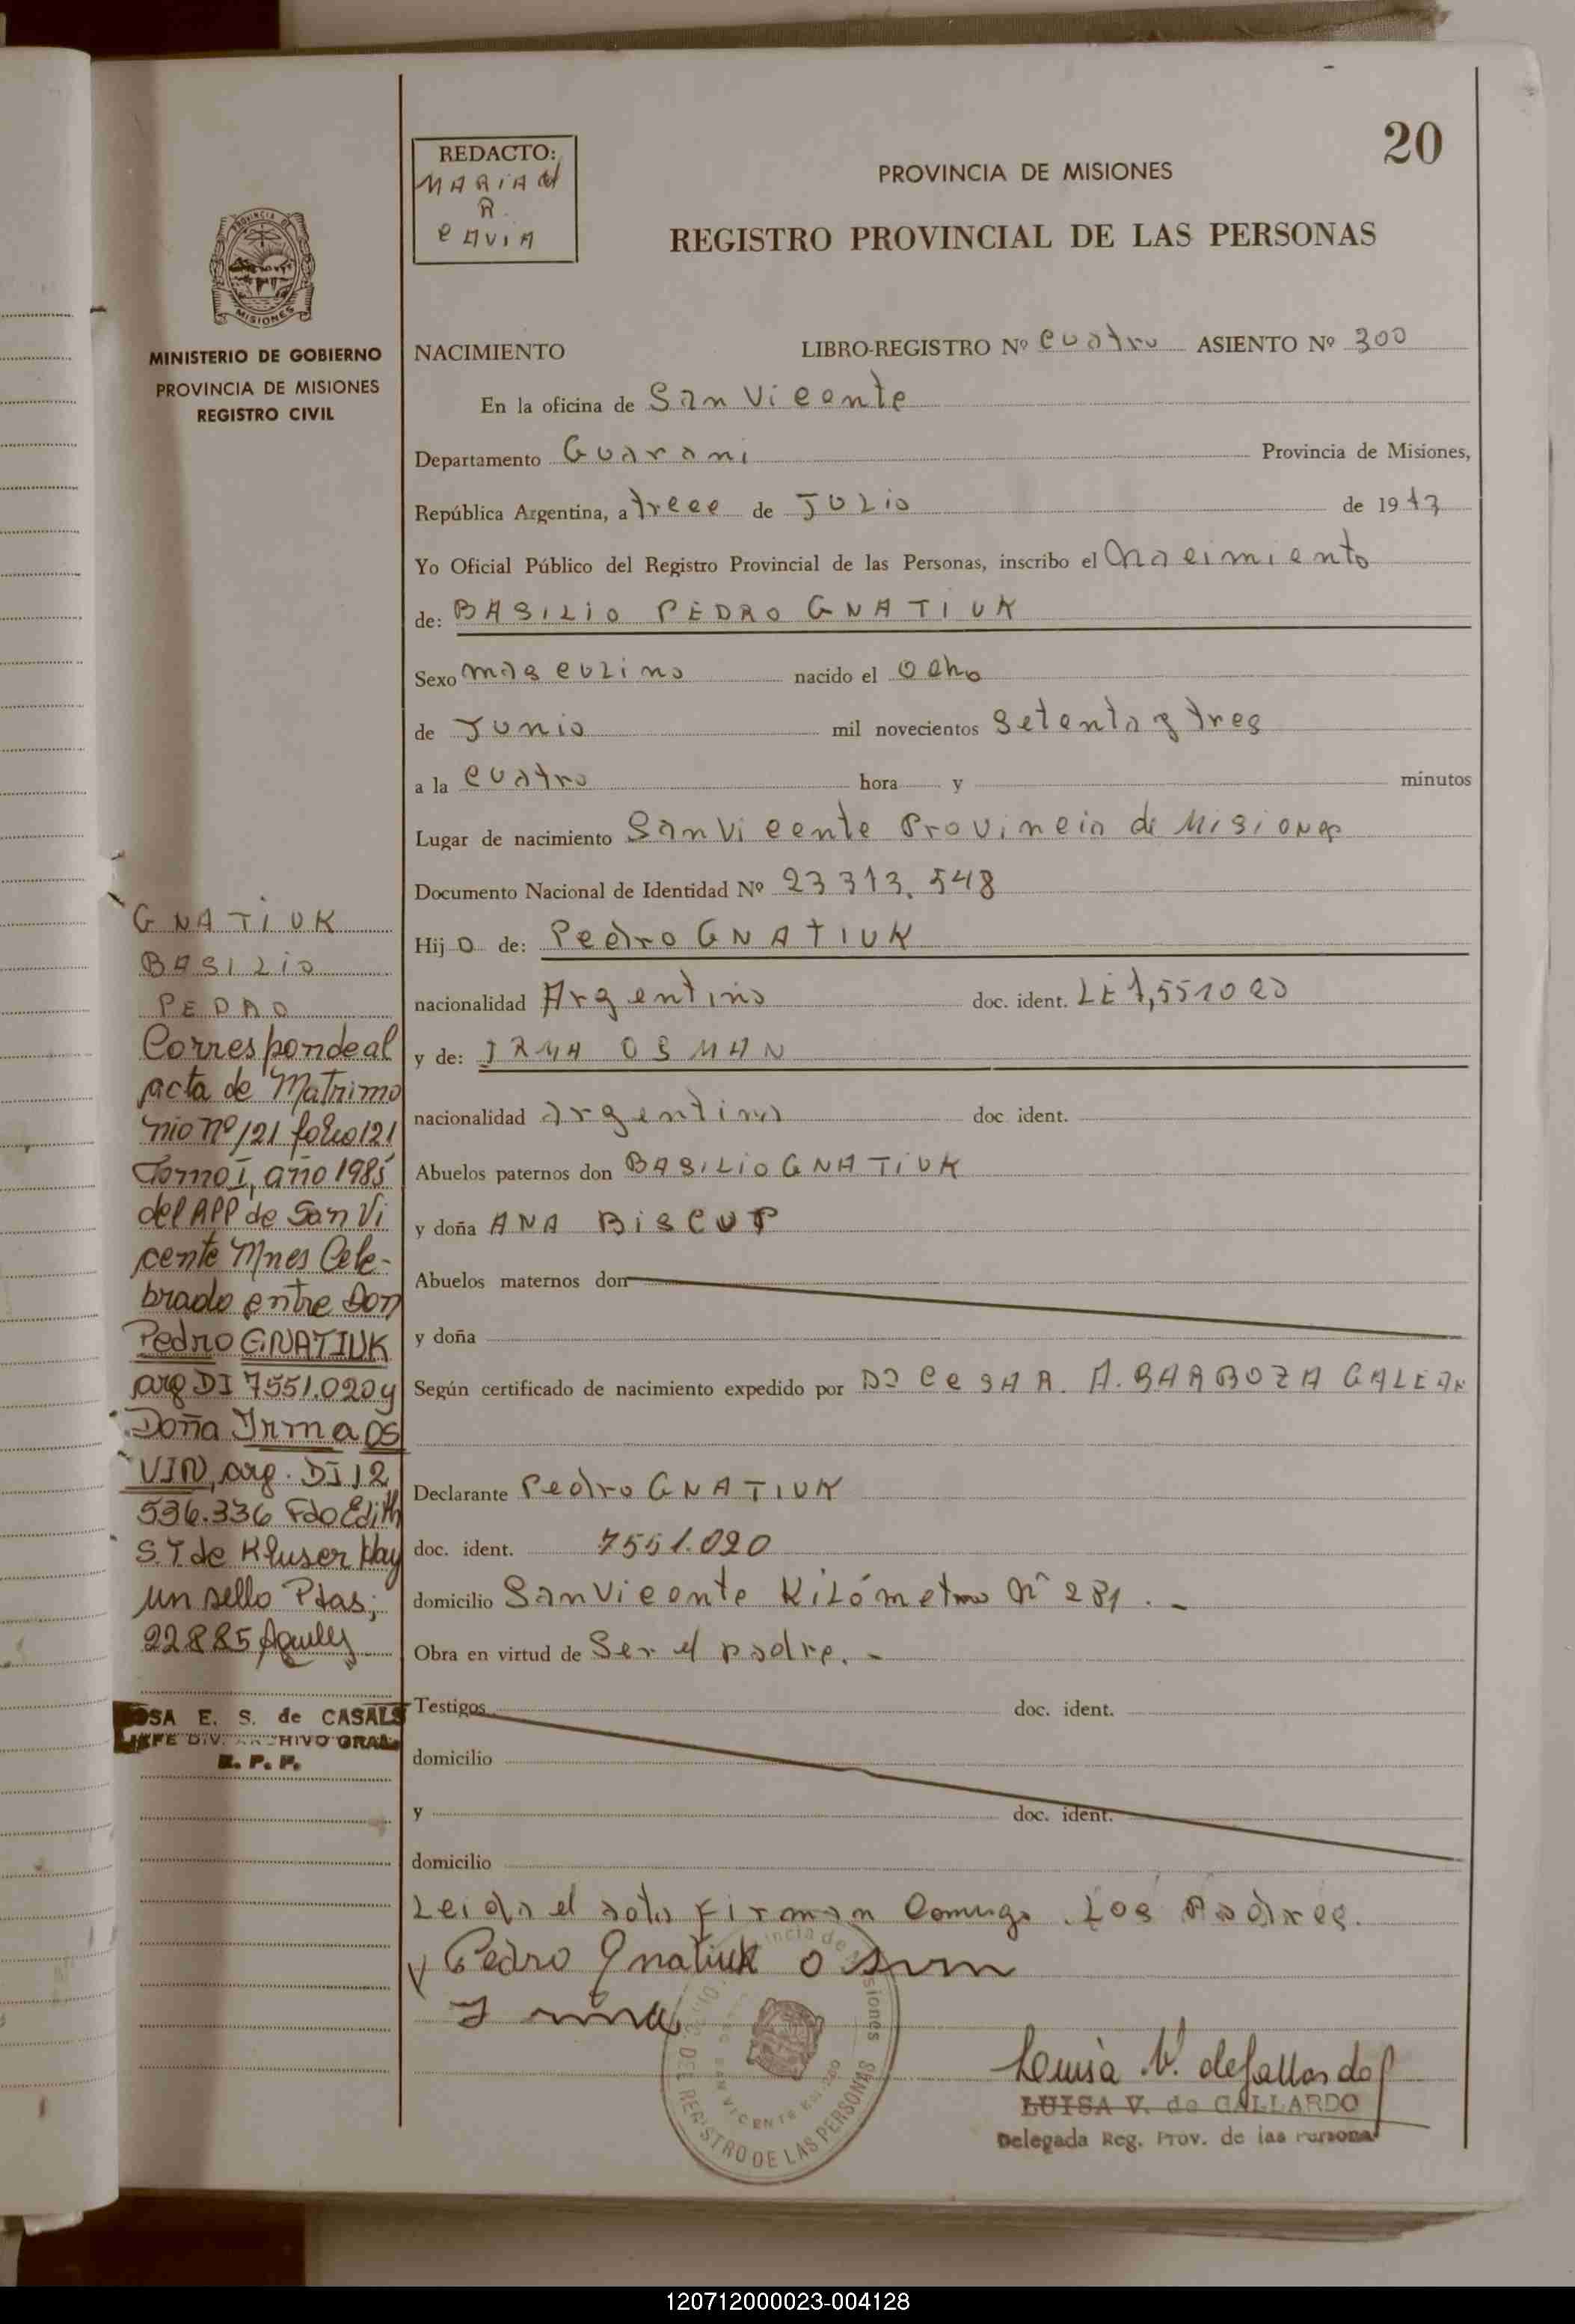 20
REDACTO:
MARIA del
R.
CAVIA
PROVINCIA DE MISIONES
REGISTRO PROVINCIAL DE LAS PERSONAS
PROVINCIA DE
MISIONES
MINISTERIO DE GOBIERNO
PROVINCIA DE MISIONES
REGISTRO CIVIL
NACIMIENTO LIBRO-REGISTRO Nº cuatro ASIENTO Nº 300
En la oficina de San Vicente
Departamento Guarani Provincia de Misiones,
República Argentina, a trece de JULio de 1973
Yo Oficial Público del Registro Provincial de las Personas, inscribo el nacimiento
de: BASILIO PEDRO GNATIUK
Sexo masculino nacido el ocho
de Junio mil novecientos setenta y tres
a la cuatro hora y minutos
Lugar de nacimiento San Vicente Provincia de Misiones
Documento Nacional de Identidad Nº 23 313.548
Hijo de: Pedro GNATIUK
nacionalidad Argentino doc. ident. LE 7,551020
y de: IRMA OSMAN
nacionalidad argentina doc ident.
Abuelos paternos don BASILIO GNATIUK
y doña ANA BISCUP
Abuelos maternos don
y doña
Según certificado de nacimiento expedido por DJ CeSAR. A. BARBOZA GALEAN
Declarante Pedro GNATIUK
doc. ident. 7551.020
domicilio San Vicente Kilómetro Nº 281.-
Obra en virtud de Ser el padre.-
Testigos doc. ident.
domicilio
y doc. ident.
domicilio
Leida el acta Firman Comigo Los Padres.
Pedro Gnatiuk
Irma
GNATIUK
BASILIO
PEDRO
Corresponde al
acta de Matrimo
nio nº 121 folio 121
Tomo I, año 1985
del APP de San Vi
cente Mnes Cele-
brado entre Don
Pedro GNATIUK
arg DI 7551.020 y
Doña Irma OS
VIN, arg. DI 12
536.336 Fdo Edith
S.T de Kluser Hay
un sello Pdas;
22 8 85
OSA E. S. de CASALS
JEFE DIV. ARCHIVO GRAL.
R. P. P.
Provincia de Misiones
DEL REGISTRO DE LAS PERSONAS
SAN VICENTE
Luisa V. de Gallardo
LUISA V. de GALLARDO
Delegada Reg. Prov. de las Personas
120712000023-004128